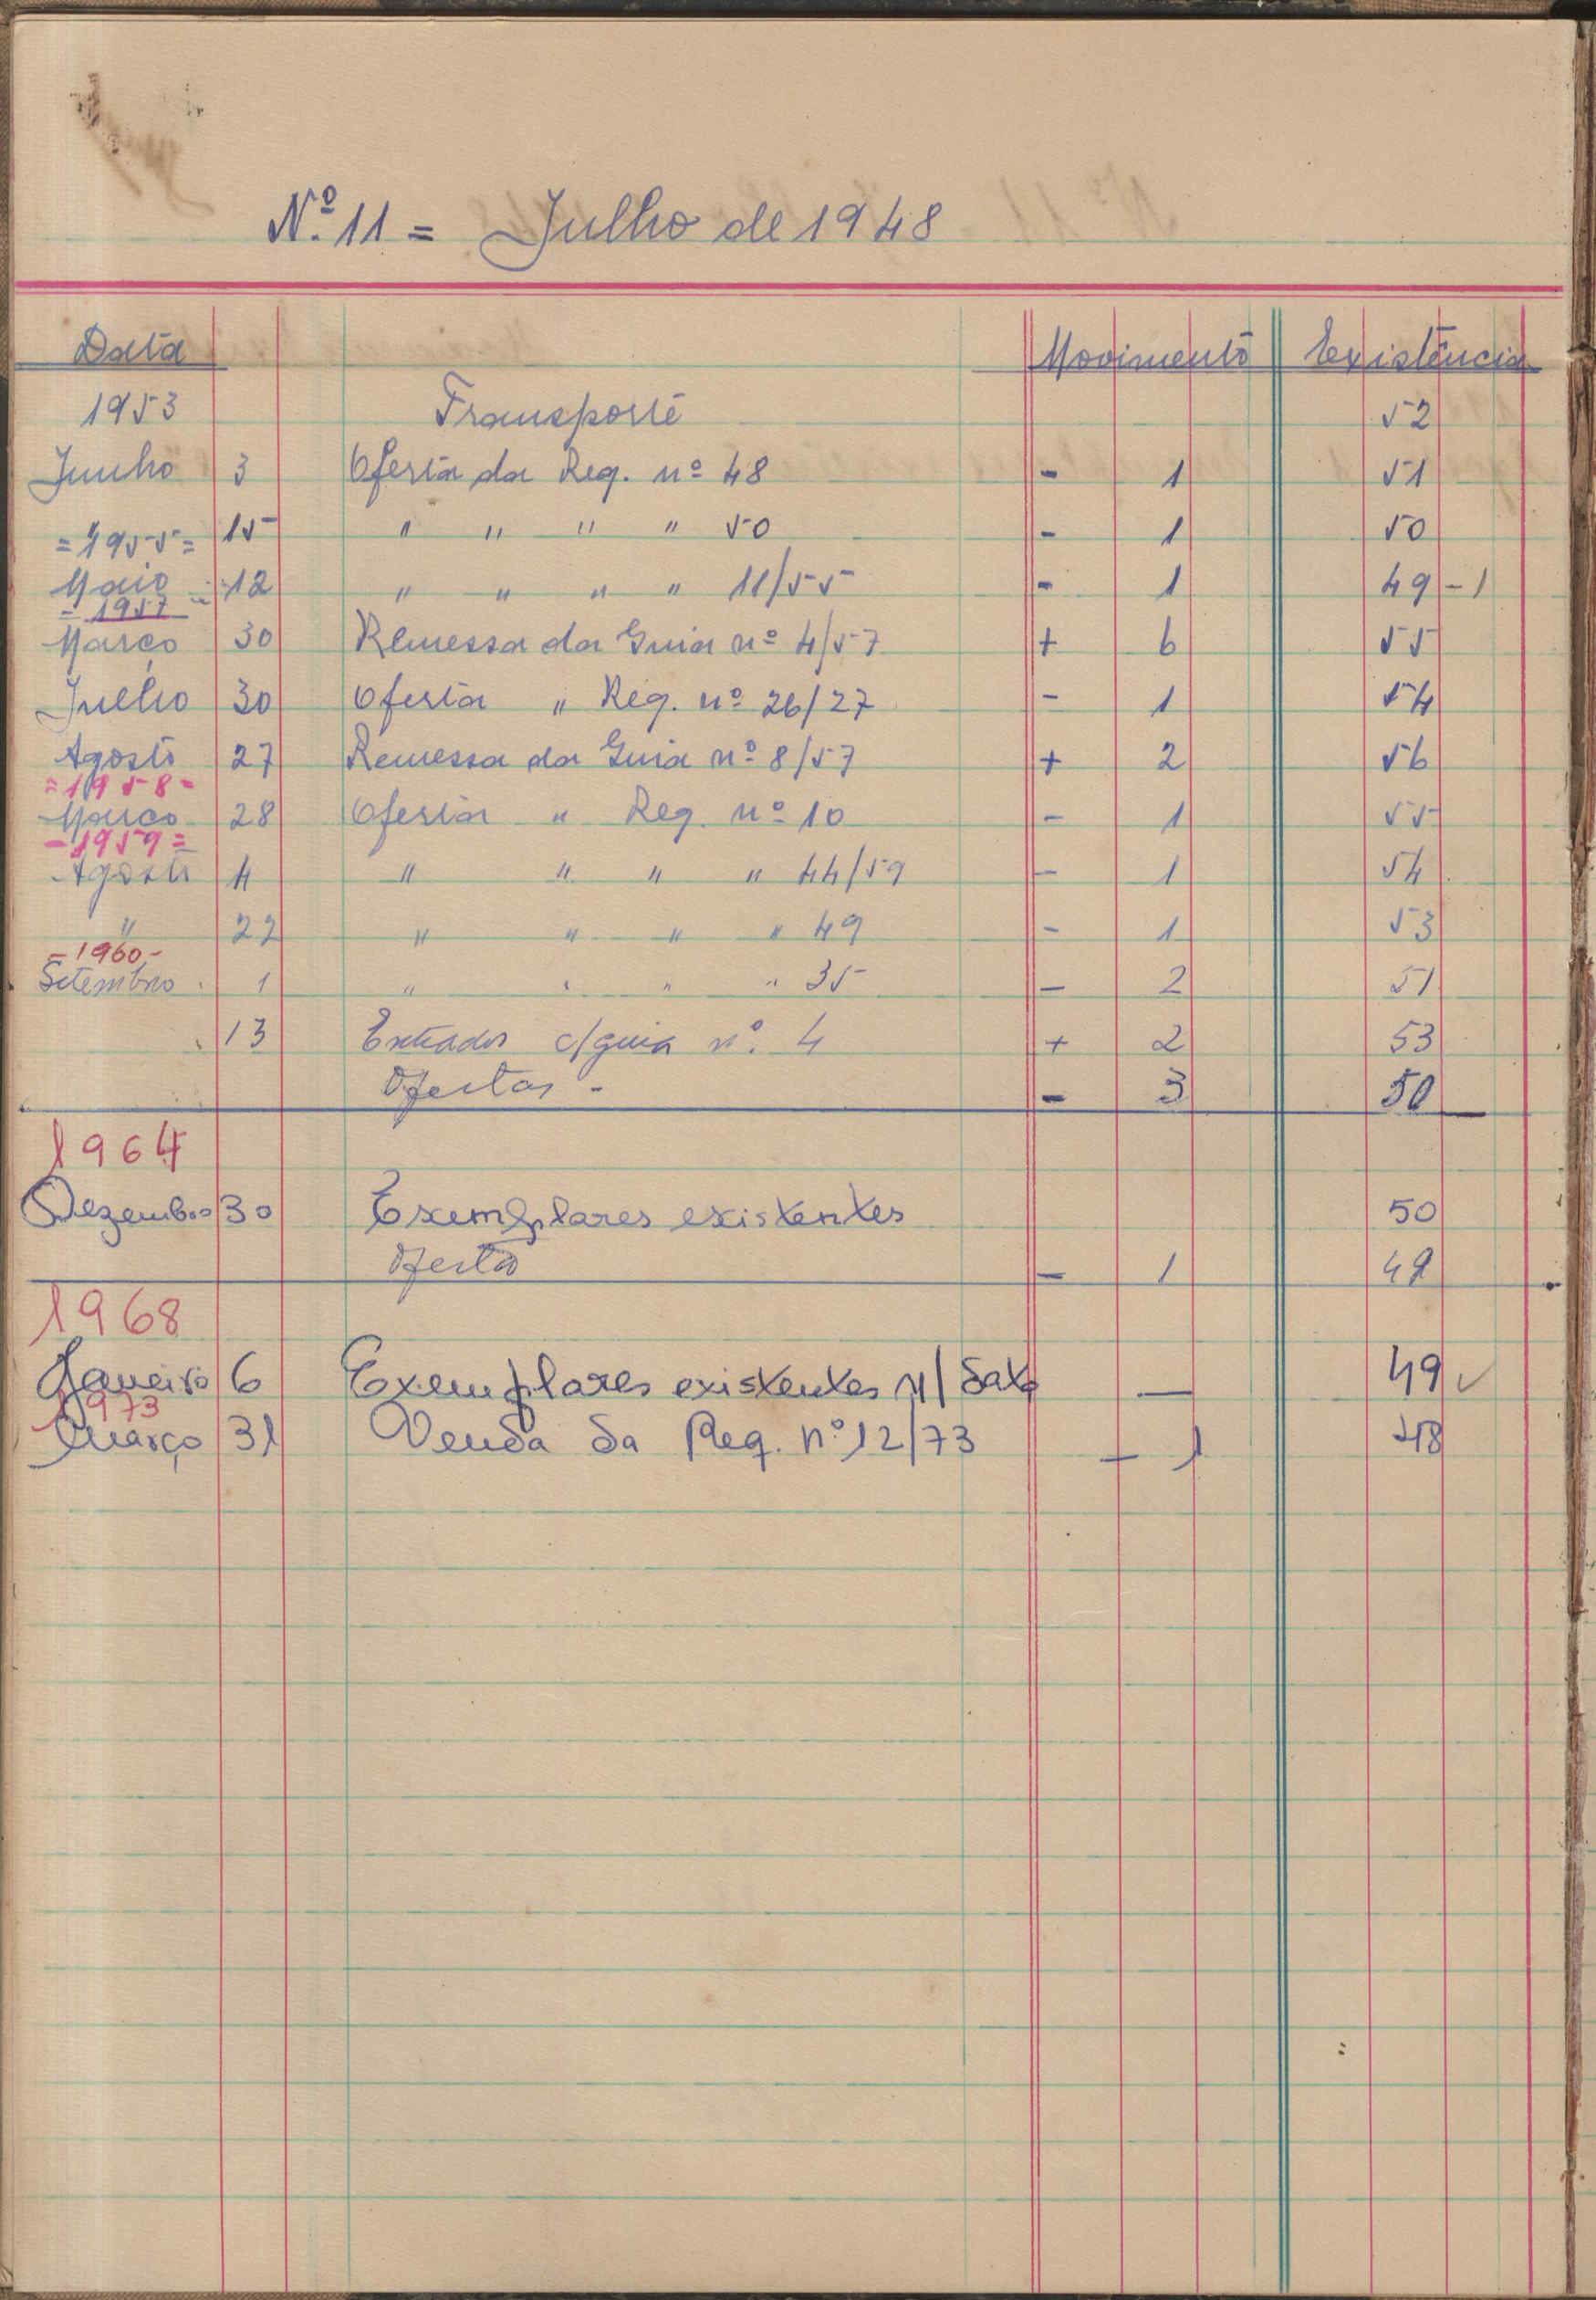 Nº 11 = Julho de 1948
Data Movimento Existência
1953 Transporte 52
Junho 3 Oferta da Req. nº 48 - 1 51
" 15 " " " " 50 - 1 50
= 1955 =
Maio 12 " " " " 11/55 - 1 49 - 1
= 1957 =
Março 30 Remessa da Guia nº 4/57 + 6 55
Julho 30 Oferta " Req. nº 26/27 - 1 54
Agosto 27 Remessa da Guia nº 8/57 + 2 56
= 1958 =
Março 28 Oferta " Req. nº 10 - 1 55
- 1959 =
Agosto 4 " " " " 44/59 - 1 54
" 22 " " " " 49 - 1 53
- 1960 -
Setembro 1 " " " " 35 - 2 51
13 Entrados c/guia nº 4 + 2 53
Ofertas - - 3 50
1964
Dezembro 30 Exemplares existentes 50
Oferta - 1 49
1968
Janeiro 6 Exemplares existentes n/ data — 49 ✓
1973
Março 31 Venda da Req. nº 12/73 - 1 48